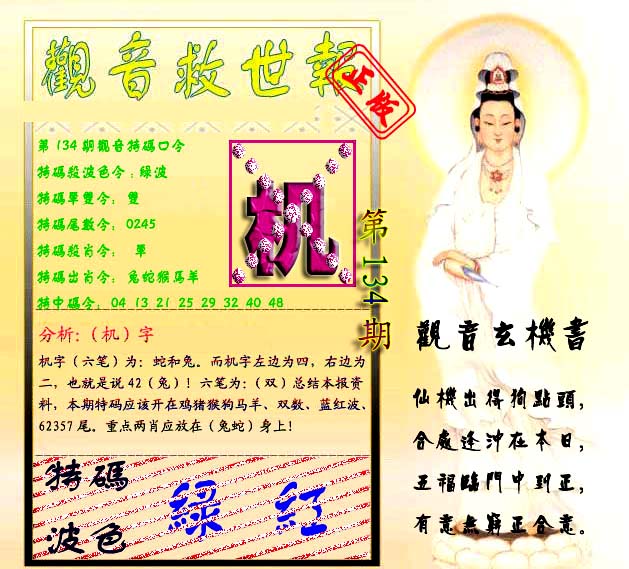 觀音救世報
正版
第134期觀音特碼口令
特碼殺波色令:綠波
特碼單雙令: 雙
特碼尾數令: 0245
特碼殺肖令: 單
特碼出肖令: 兔蛇猴馬羊
特中碼令: 04 13 21 25 29 32 40 48
机
第134期
分析:（机）字
机字（六笔）为：蛇和兔。而机字左边为四，右边为
二，也就是说42（兔）！六笔为：（双）总结本报资
料，本期特码应该开在鸡猪猴狗马羊、双数、蓝红波、
62357尾。重点两肖应放在（兔蛇）身上！
特碼
波色
綠 红
觀音玄機書
仙機出得狗點頭，
合處逢沖在本日，
五福臨門中到正，
有意無窮正合意。